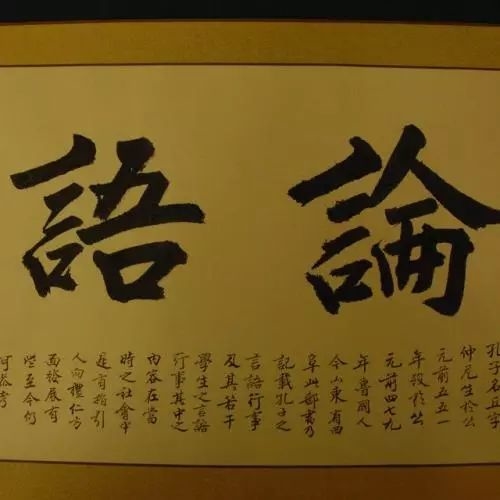 論語
孔子名丘字
仲尼生於公
元前五五一
年歿於公
元前四七九
年魯國人
今山東省曲
阜此部書乃
記載孔子之
言語行事
及其若干
學生之言語
行事其中之
內容在當
時之社會中
是有指引
人向禮仁方
面發展有
些至今仍
可參考